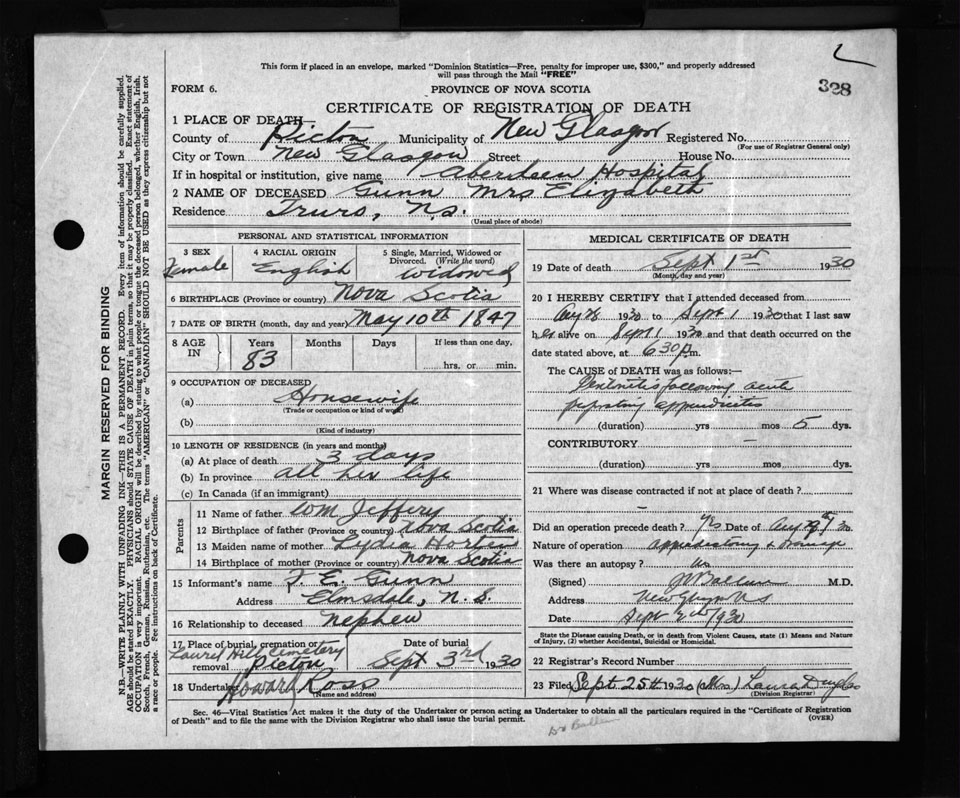 This form if placed in an envelope, marked "Dominion Statistics—Free, penalty for improper use, $300," and properly addressed
will pass through the Mail "FREE"
328
FORM 6.
PROVINCE OF NOVA SCOTIA
CERTIFICATE OF REGISTRATION OF DEATH
1 PLACE OF DEATH
County of Picton Municipality of New Glasgow Registered No.
(For use of Registrar General only)
City or Town New Glasgow Street House No.
If in hospital or institution, give name Aberdeen Hospital
2 NAME OF DECEASED Gunn Mrs Elizabeth
Residence Truro, N.S.
(Usual place of abode)
PERSONAL AND STATISTICAL INFORMATION
3 SEX Female
4 RACIAL ORIGIN English
5 Single, Married, Widowed or Divorced. (Write the word) widowed
6 BIRTHPLACE (Province or country) Nova Scotia
7 DATE OF BIRTH (month, day and year) May 10th 1847
8 AGE IN Years 83 Months Days If less than one day, hrs. or min.
9 OCCUPATION OF DECEASED
(a) Housewife
(Trade or occupation or kind of work)
(b)
(Kind of industry)
10 LENGTH OF RESIDENCE (in years and months)
(a) At place of death 3 days
(b) In province all her life
(c) In Canada (if an immigrant)
Parents
11 Name of father Wm Jeffery
12 Birthplace of father (Province or country) Nova Scotia
13 Maiden name of mother Lydia Horten
14 Birthplace of mother (Province or country) Nova Scotia
15 Informant's name F. E. Gunn
Address Elmsdale, N.S.
16 Relationship to deceased nephew
17 Place of burial, cremation or removal Laurel Hill Cemetery Picton
Date of burial Sept 3rd 1930
18 Undertaker Howard Ross
(Name and address)
MEDICAL CERTIFICATE OF DEATH
19 Date of death Sept 1st 1930
(Month, day and year)
20 I HEREBY CERTIFY that I attended deceased from
Aug 28 1930 to Sept 1 1930 that I last saw
her alive on Sept 1 1930 and that death occurred on the
date stated above, at 6 30 P.m.
The CAUSE of DEATH was as follows:—
following acute
appendicitis
(duration) yrs mos 5 dys.
CONTRIBUTORY —
(duration) yrs. mos. dys.
21 Where was disease contracted if not at place of death?
Did an operation precede death? Yes Date of Aug
Nature of operation appendectomy & Drainage
Was there an autopsy? No
(Signed) M.D.
Address New Glasgow N.S
Date Sept 2nd /930
State the Disease causing Death, or in death from Violent Causes, state (1) Means and Nature
of Injury, (2) whether Accidental, Suicidal or Homicidal.
22 Registrar's Record Number
23 Filed Sept. 25th 1930 (Mrs) Laura Douglas
(Division Registrar)
Sec. 46—Vital Statistics Act makes it the duty of the Undertaker or person acting as Undertaker to obtain all the particulars required in the "Certificate of Registration
of Death" and to file the same with the Division Registrar who shall issue the burial permit.
(OVER)
MARGIN RESERVED FOR BINDING
N.B.—WRITE PLAINLY WITH UNFADING INK—THIS IS A PERMANENT RECORD. Every item of information should be carefully supplied.
AGE should be stated EXACTLY. PHYSICIANS should STATE CAUSE OF DEATH in plain terms, so that it may be properly classified. Exact statement of
OCCUPATION is very important. RACIAL ORIGIN will be described by stating to what people or tongue the deceased person belonged, whether English, Irish,
Scotch, French, German, Russian, Ruthenian, etc. The terms "AMERICAN" or "CANADIAN" SHOULD NOT BE USED as they express citizenship but not
a race or people. See instructions on back of Certificate.